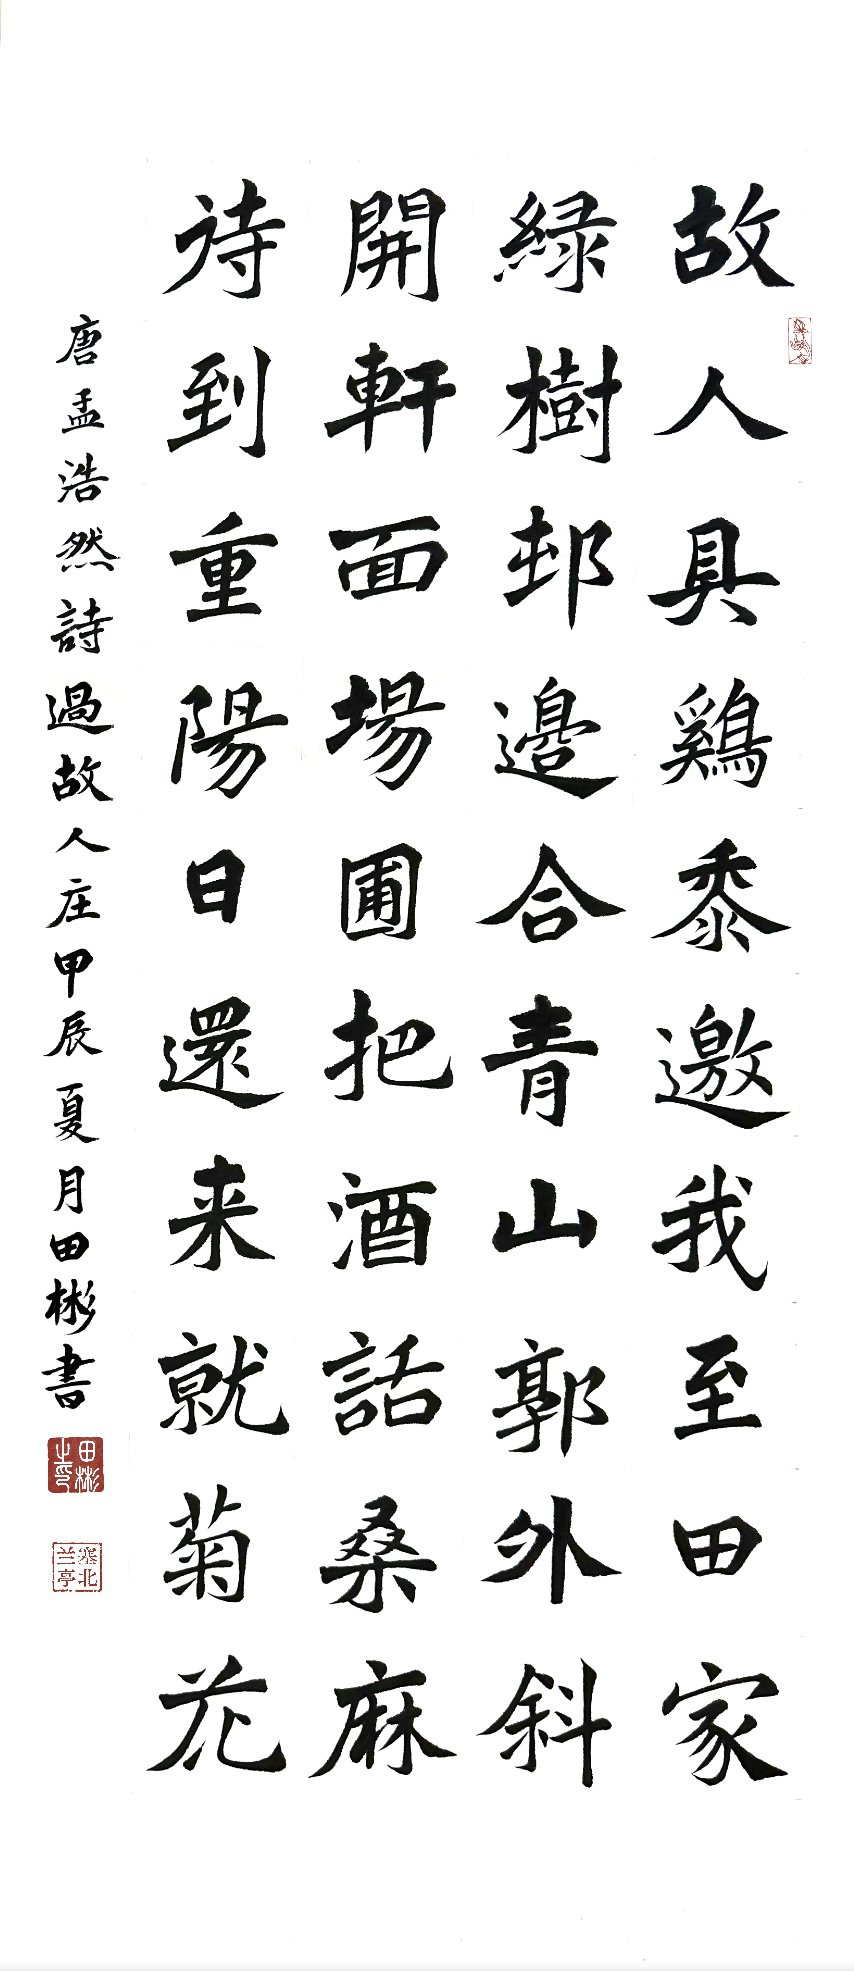 故人具鷄黍邀我至田家
緑樹邨邊合青山郭外斜
開軒面場圃把酒話桑麻
待到重陽日還来就菊花
唐孟浩然詩過故人庄甲辰夏月田彬書
田彬之印
塞北兰亭